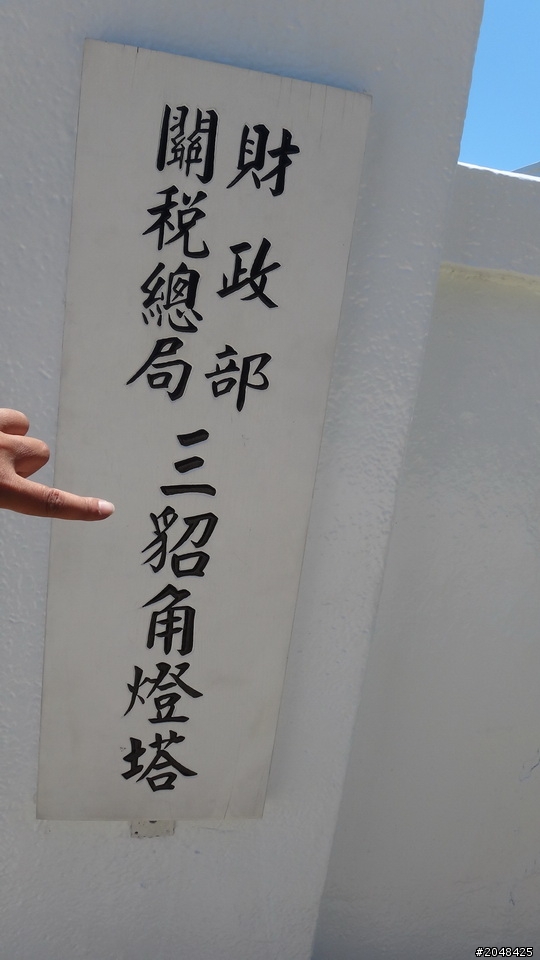 財政部
關稅總局
三貂角燈塔
#2048425